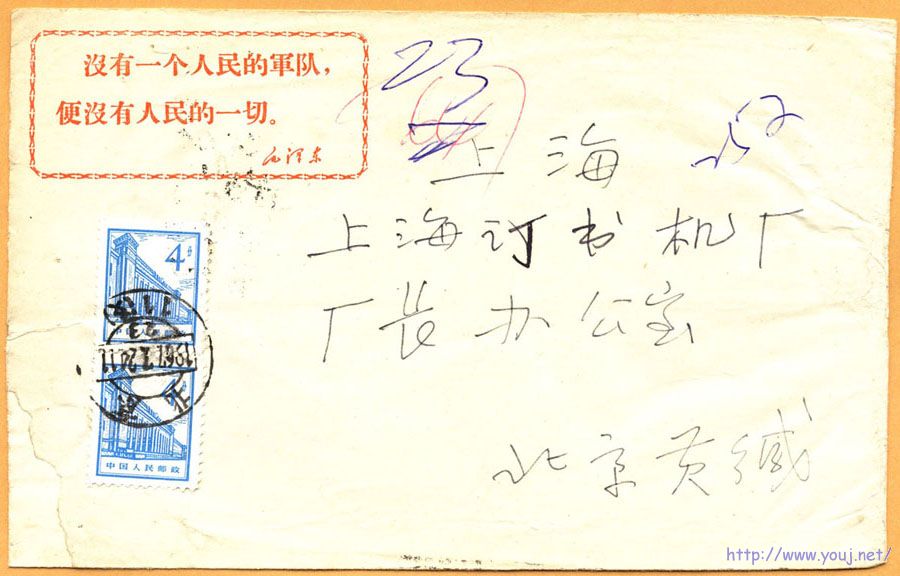 沒有一个人民的軍队，
便沒有人民的一切。
毛泽东
23
上海
上海订书机厂
厂长办公室
北京黄缄
4分
中国人民邮政
1967.2.24.11
23
北京
http://www.youj.net/